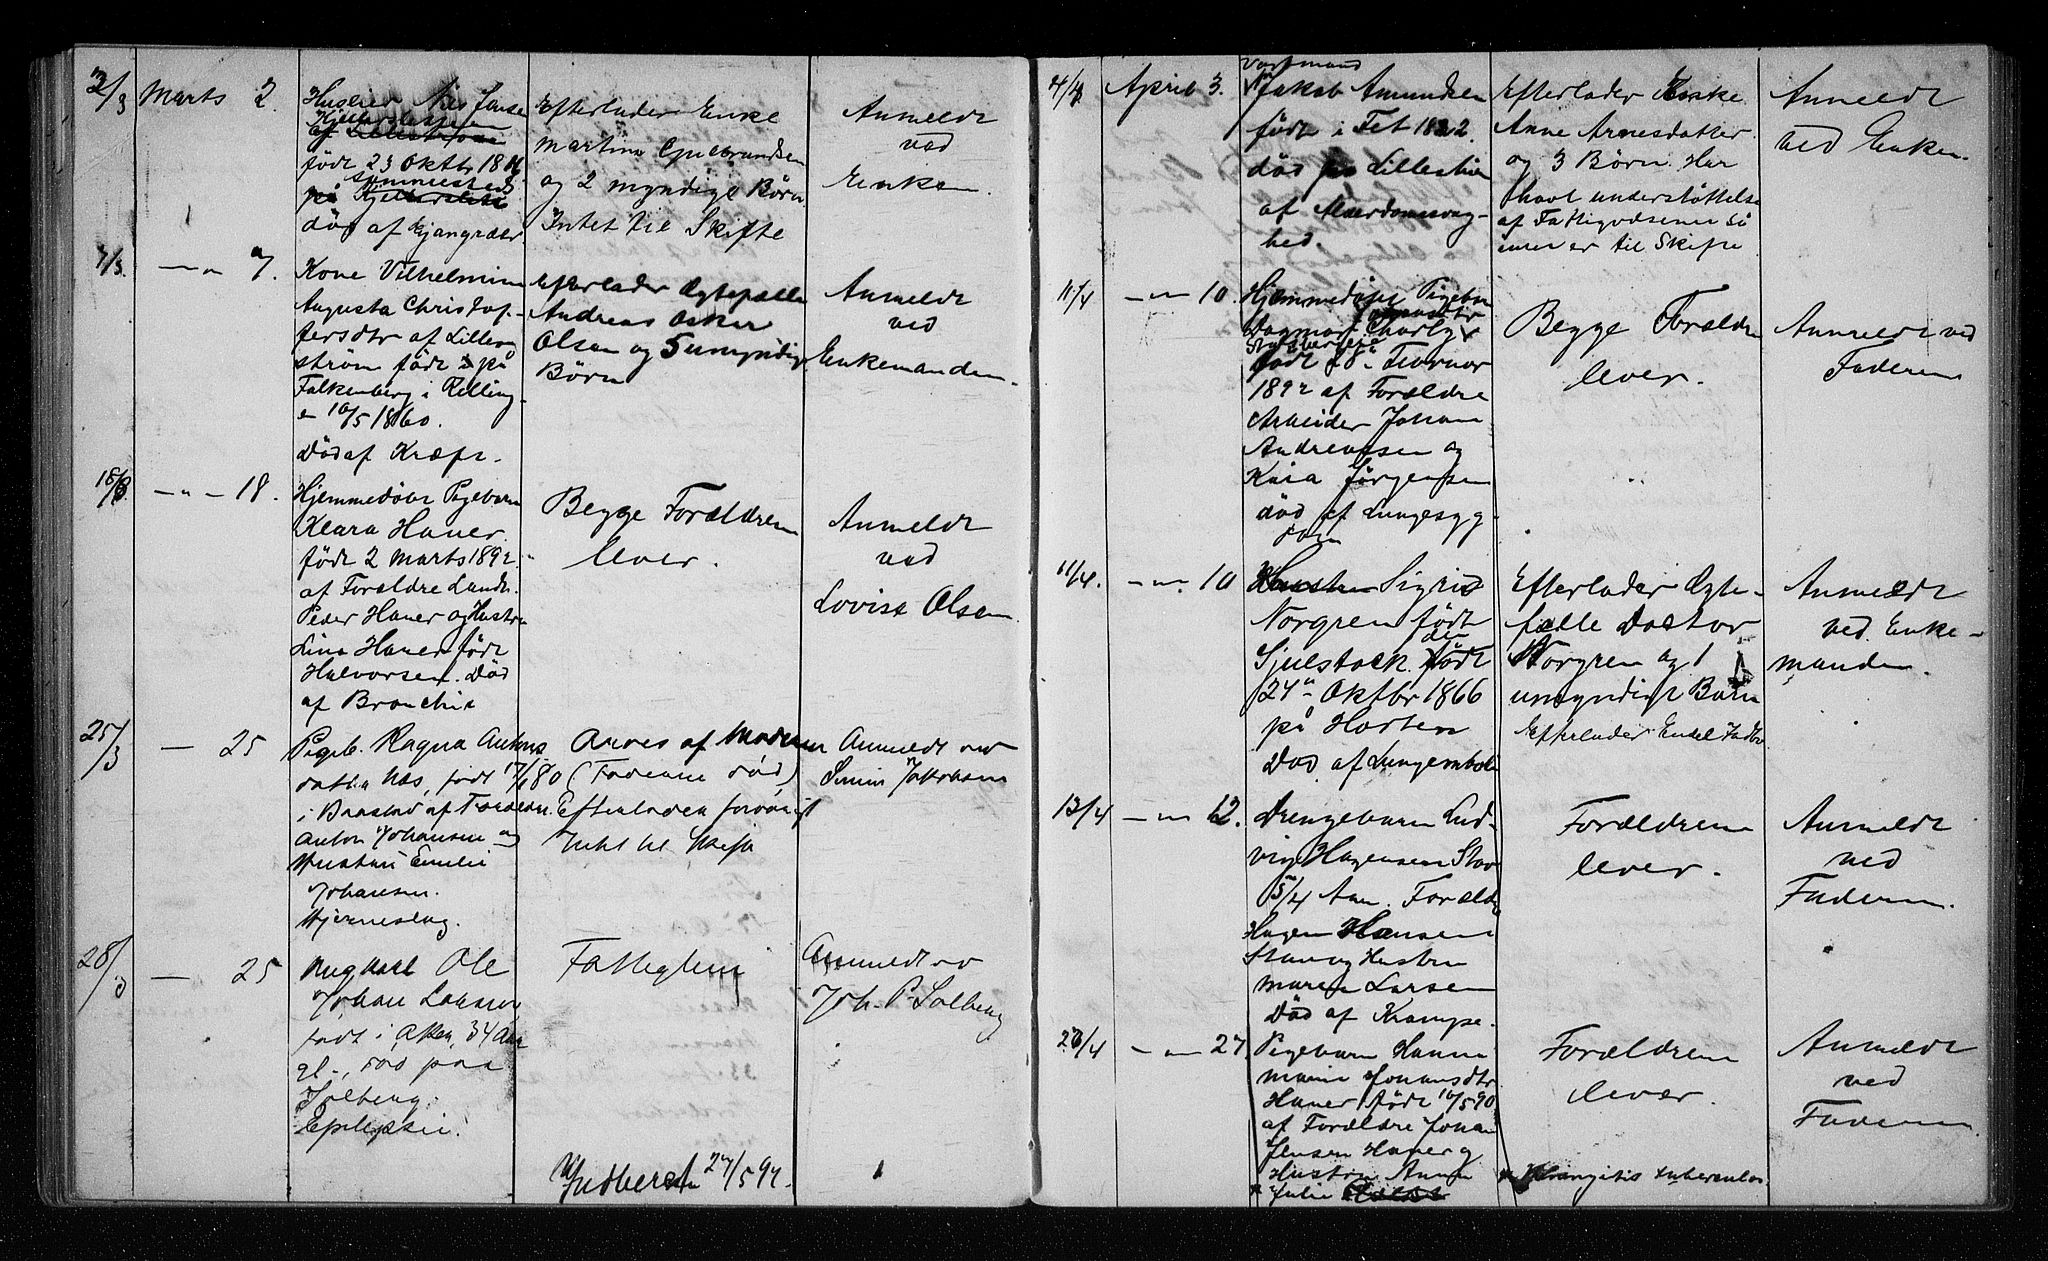 3/3 Marts 2.
Huslied Nils Jansen
Kjellerstesjen
af Lillestrøm
født 23 Oktbr 18
Sommersted
på
død af Gjangræn
Efterlader Enke
Martine Gulbrandsen
og 2 myndige Børn
Intet til Skifte
Anmeldt
ved
Enken.
7/3. — " 7.
Kone Vilhelmine
Augusta Christof-
fersdtr af Lille-
strøm født på
Falkenberg i Relling-
en 16/5 1860.
Død af Kræft.
Efterlader Ægtefælle
Andreas Oskar
Olsen og 5 umyndige
Børn
Anmeldt
ved
Enkemanden.
18/3. — " — 18.
Hjemmedøbt Pigebarn
Klara Haner.
født 2 Marts 1892.
af Forældre Landh.
Peder Haner og Hustru
Lina Haner født
Halvorsen. Død
af Bronchit
Begge Forældrene
lever.
Anmeldt
ved
Lovise Olsen
25/3 — 25
Pigeb. Ragna Antons
datter Næs, født 17/1 80
i Baastad af Forældre
Anton Johansen og
Hustru Emilie
Johansen.
Hjerneslag.
Arves af Moderen
(Faderne død)
Efterlader forøvrigt
Intet til Skifte
Anmeldt ved
Jakobsen
28/3 — 25
Ungkarl Ole
Johan Larsen,
født i Asker, 34 Aar
gl., død paa
Solberg.
Epilepsii.
Fattiglem
Anmeldt ved
Joh. P. Solberg
Indberettet 27/5 92.
4/4 April 3.
Jakob Amundsen
født i Fet 1822.
død på Lillestrøm
af Alderdomssvag-
hed.
Efterlader Enke
Anne Arnesdatter
og 3 Børn. Har
havt understøttelse
af Fattigvæsenet så
intet er til Skifte
Anmeldt
ved Enken.
11/4 — " — 10.
Hjemmedøbt Pigebarn
Dagmar Charly
født 28" Februar
1892 af Forældre
Arbeider Johan
Andreassen og
Kaia Jørgensen
død af Lungesyg-
dom
Begge Forældre
lever.
Anmeldt ved
Faderen
11/4. — " — 10
Hustru Sigrid
Norgren født
Sjulstock. født den
24" Oktbr 1866
på Horten
Død af Lungemboli
Efterlader Ægte-
fælle Dastor
Norgren og 1
umyndigt Barn
Efterlader Endel Indbo
Anmeldt
ved Enke-
manden.
13/4 — " 12.
Drengebarn Lud-
vig Hagensen Stav
5/4 Aar. Forældre
Hagen Hansen
Stav og Hustru
Maren Larsen
Død af Krampe.
Forældrene
lever.
Anmeldt
ved
Faderen.
27/4 — " — 27
Pigebarn Hanna
Marie Johansdtr
Haner født 10/5 90
af Forældre Johan
Jensen Haner og
Hustru Anna
Julie
Forældrene
lever.
tuberculos.
Anmeldt
ved
Faderen.